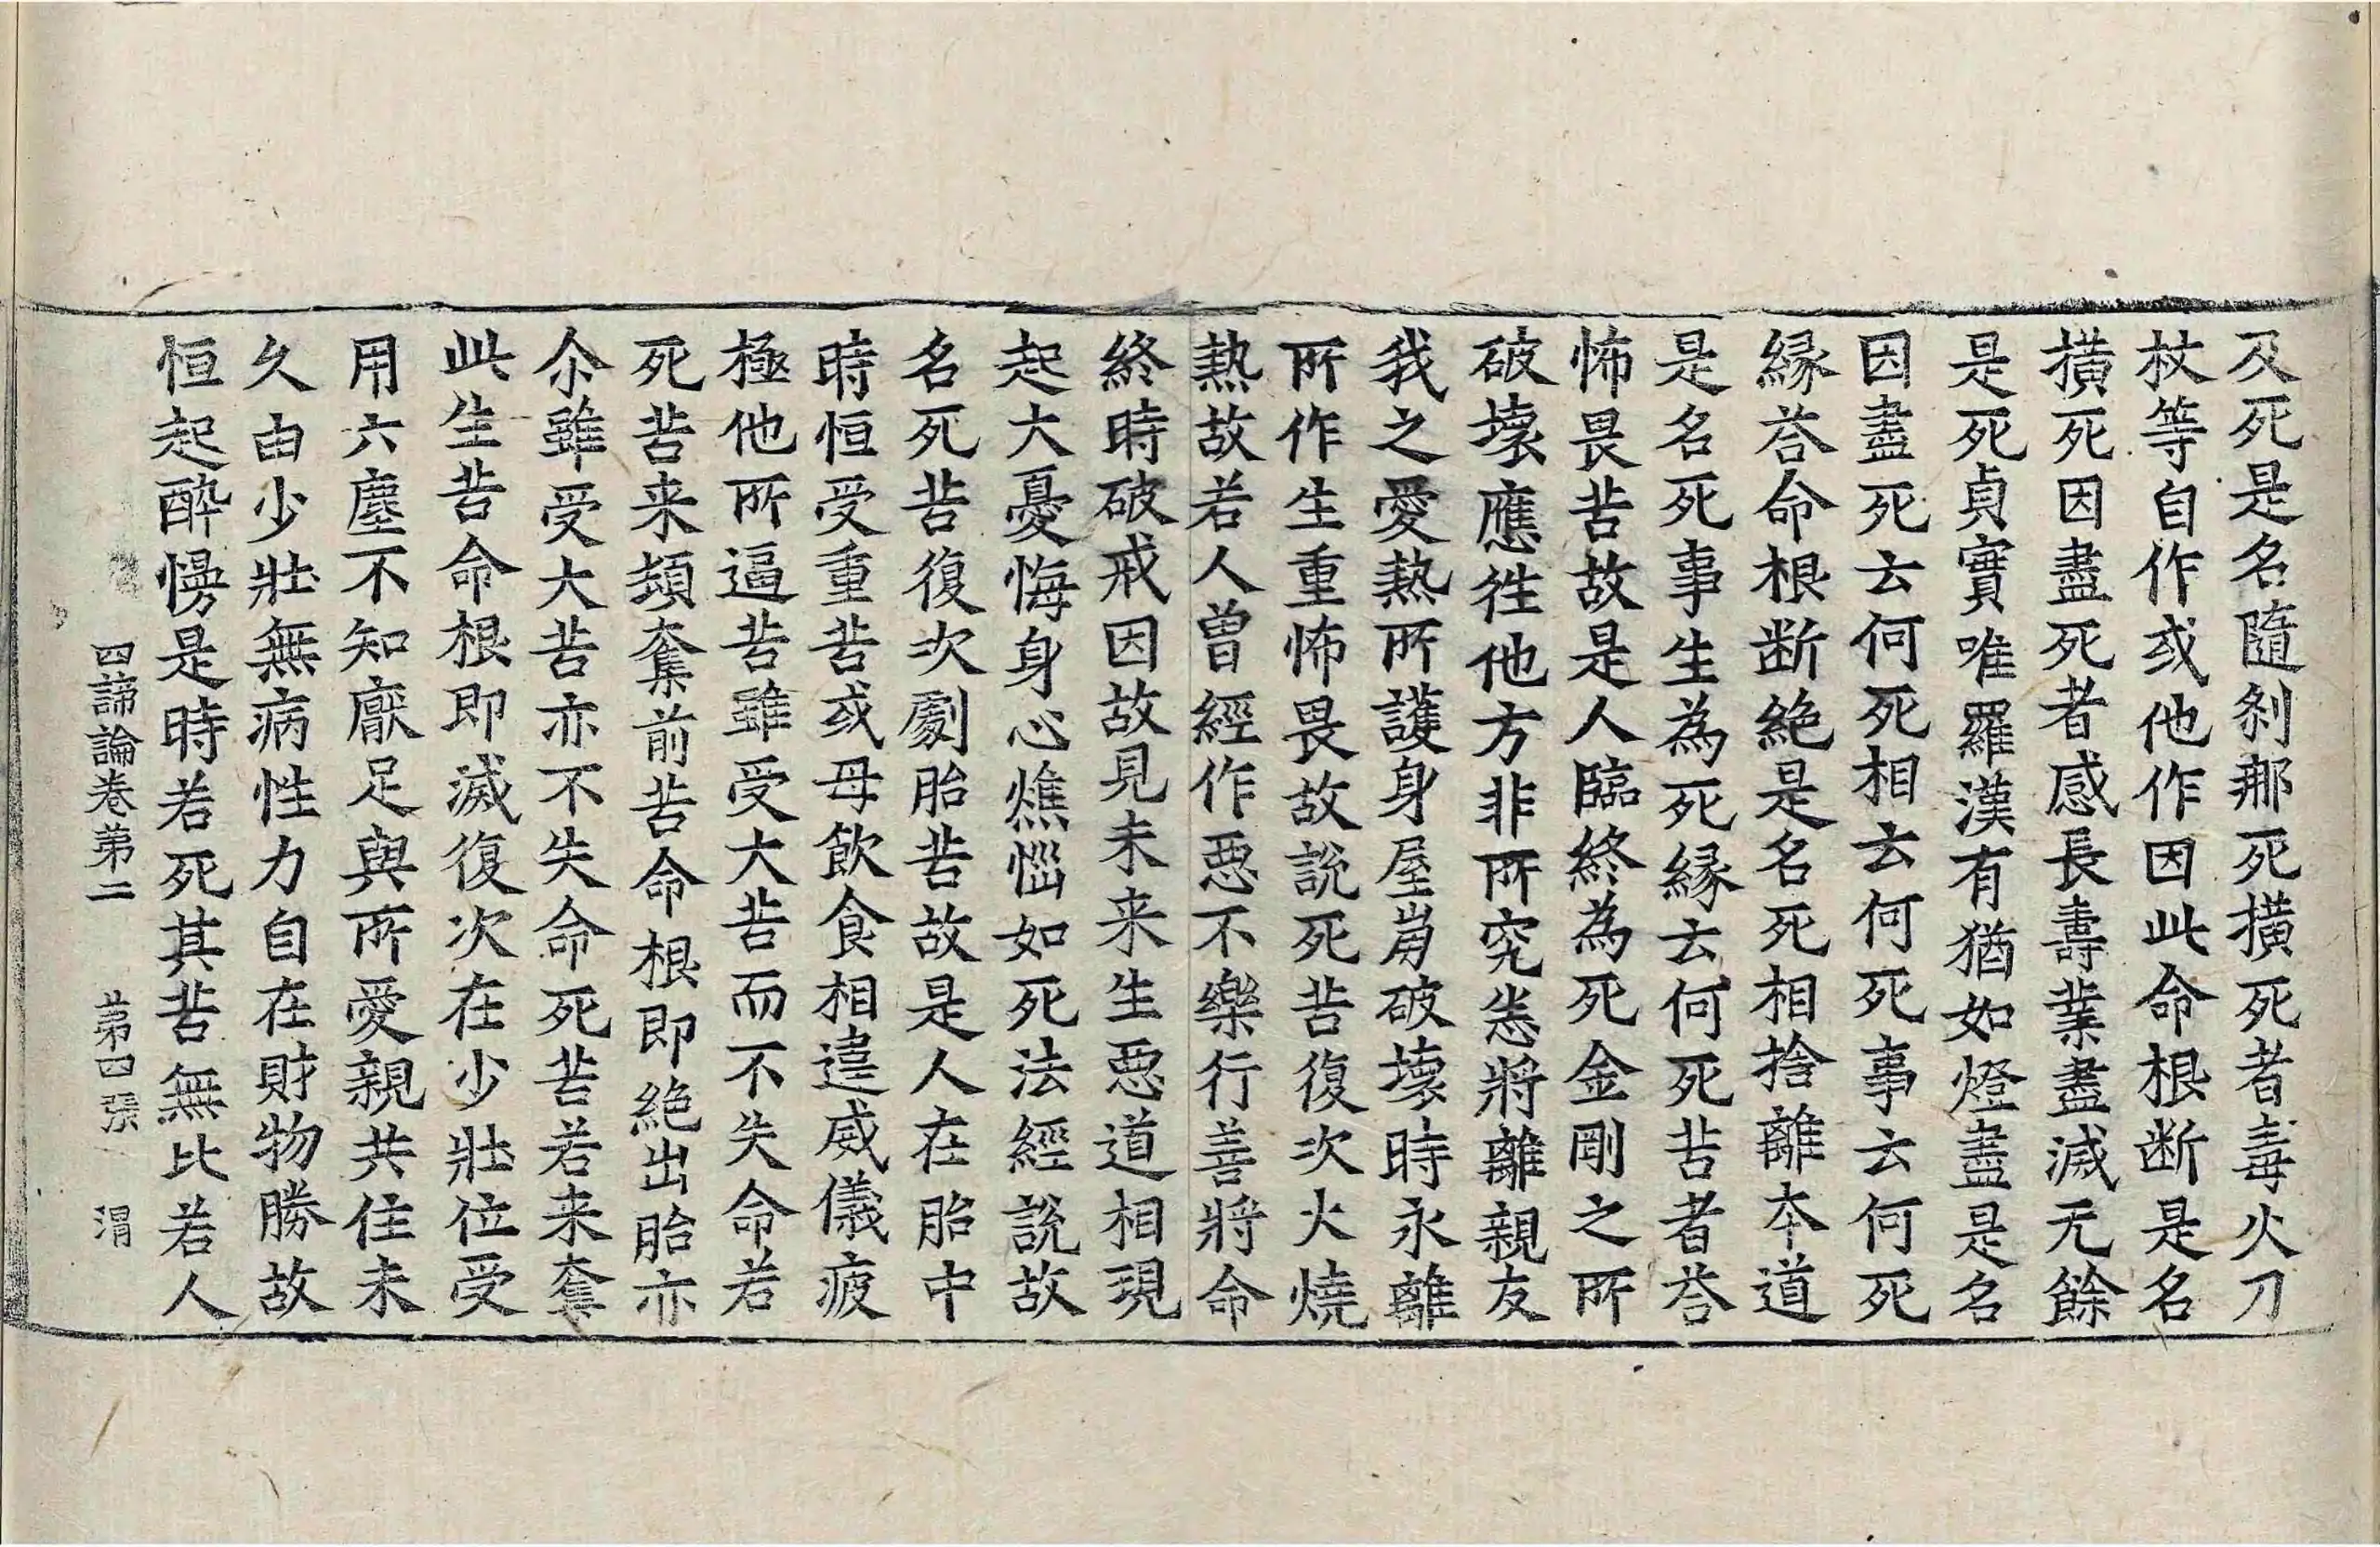 及死是名隨刹那死橫死者毒火刀
杖等自作或他作因此命根断是名
橫死因盡死者感長壽業盡滅无餘
是死貞實唯羅漢有猶如燈盡是名
因盡死云何死相云何死事云何死
縁荅命根断絶是名死相捨離本道
是名死事生為死縁云何死苦者荅
怖畏苦故是人臨終為死金剛之所
破壞應往他方非所究悉將離親友
我之愛熱所護身屋崩破壞時永離
所作生重怖畏故說死苦復次火燒
熱故若人曽經作惡不樂行善將命
終時破戒因故見未来生惡道相現
起大憂悔身心燋惱如死法經說故
名死苦復次劇胎苦故是人在胎中
時恒受重苦或母飲食相違威儀疲
極他所逼苦雖受大苦而不失命若
死苦来頞奪前苦命根即絶出胎亦
尒雖受大苦亦不失命死苦若来奪
此生苦命根即滅復次在少壯位受
用六塵不知厭足與所愛親共住未
久由少壯無病性力自在財物勝故
恒起醉慢是時若死其苦無比若人
四諦論卷苐二 苐四張 渭